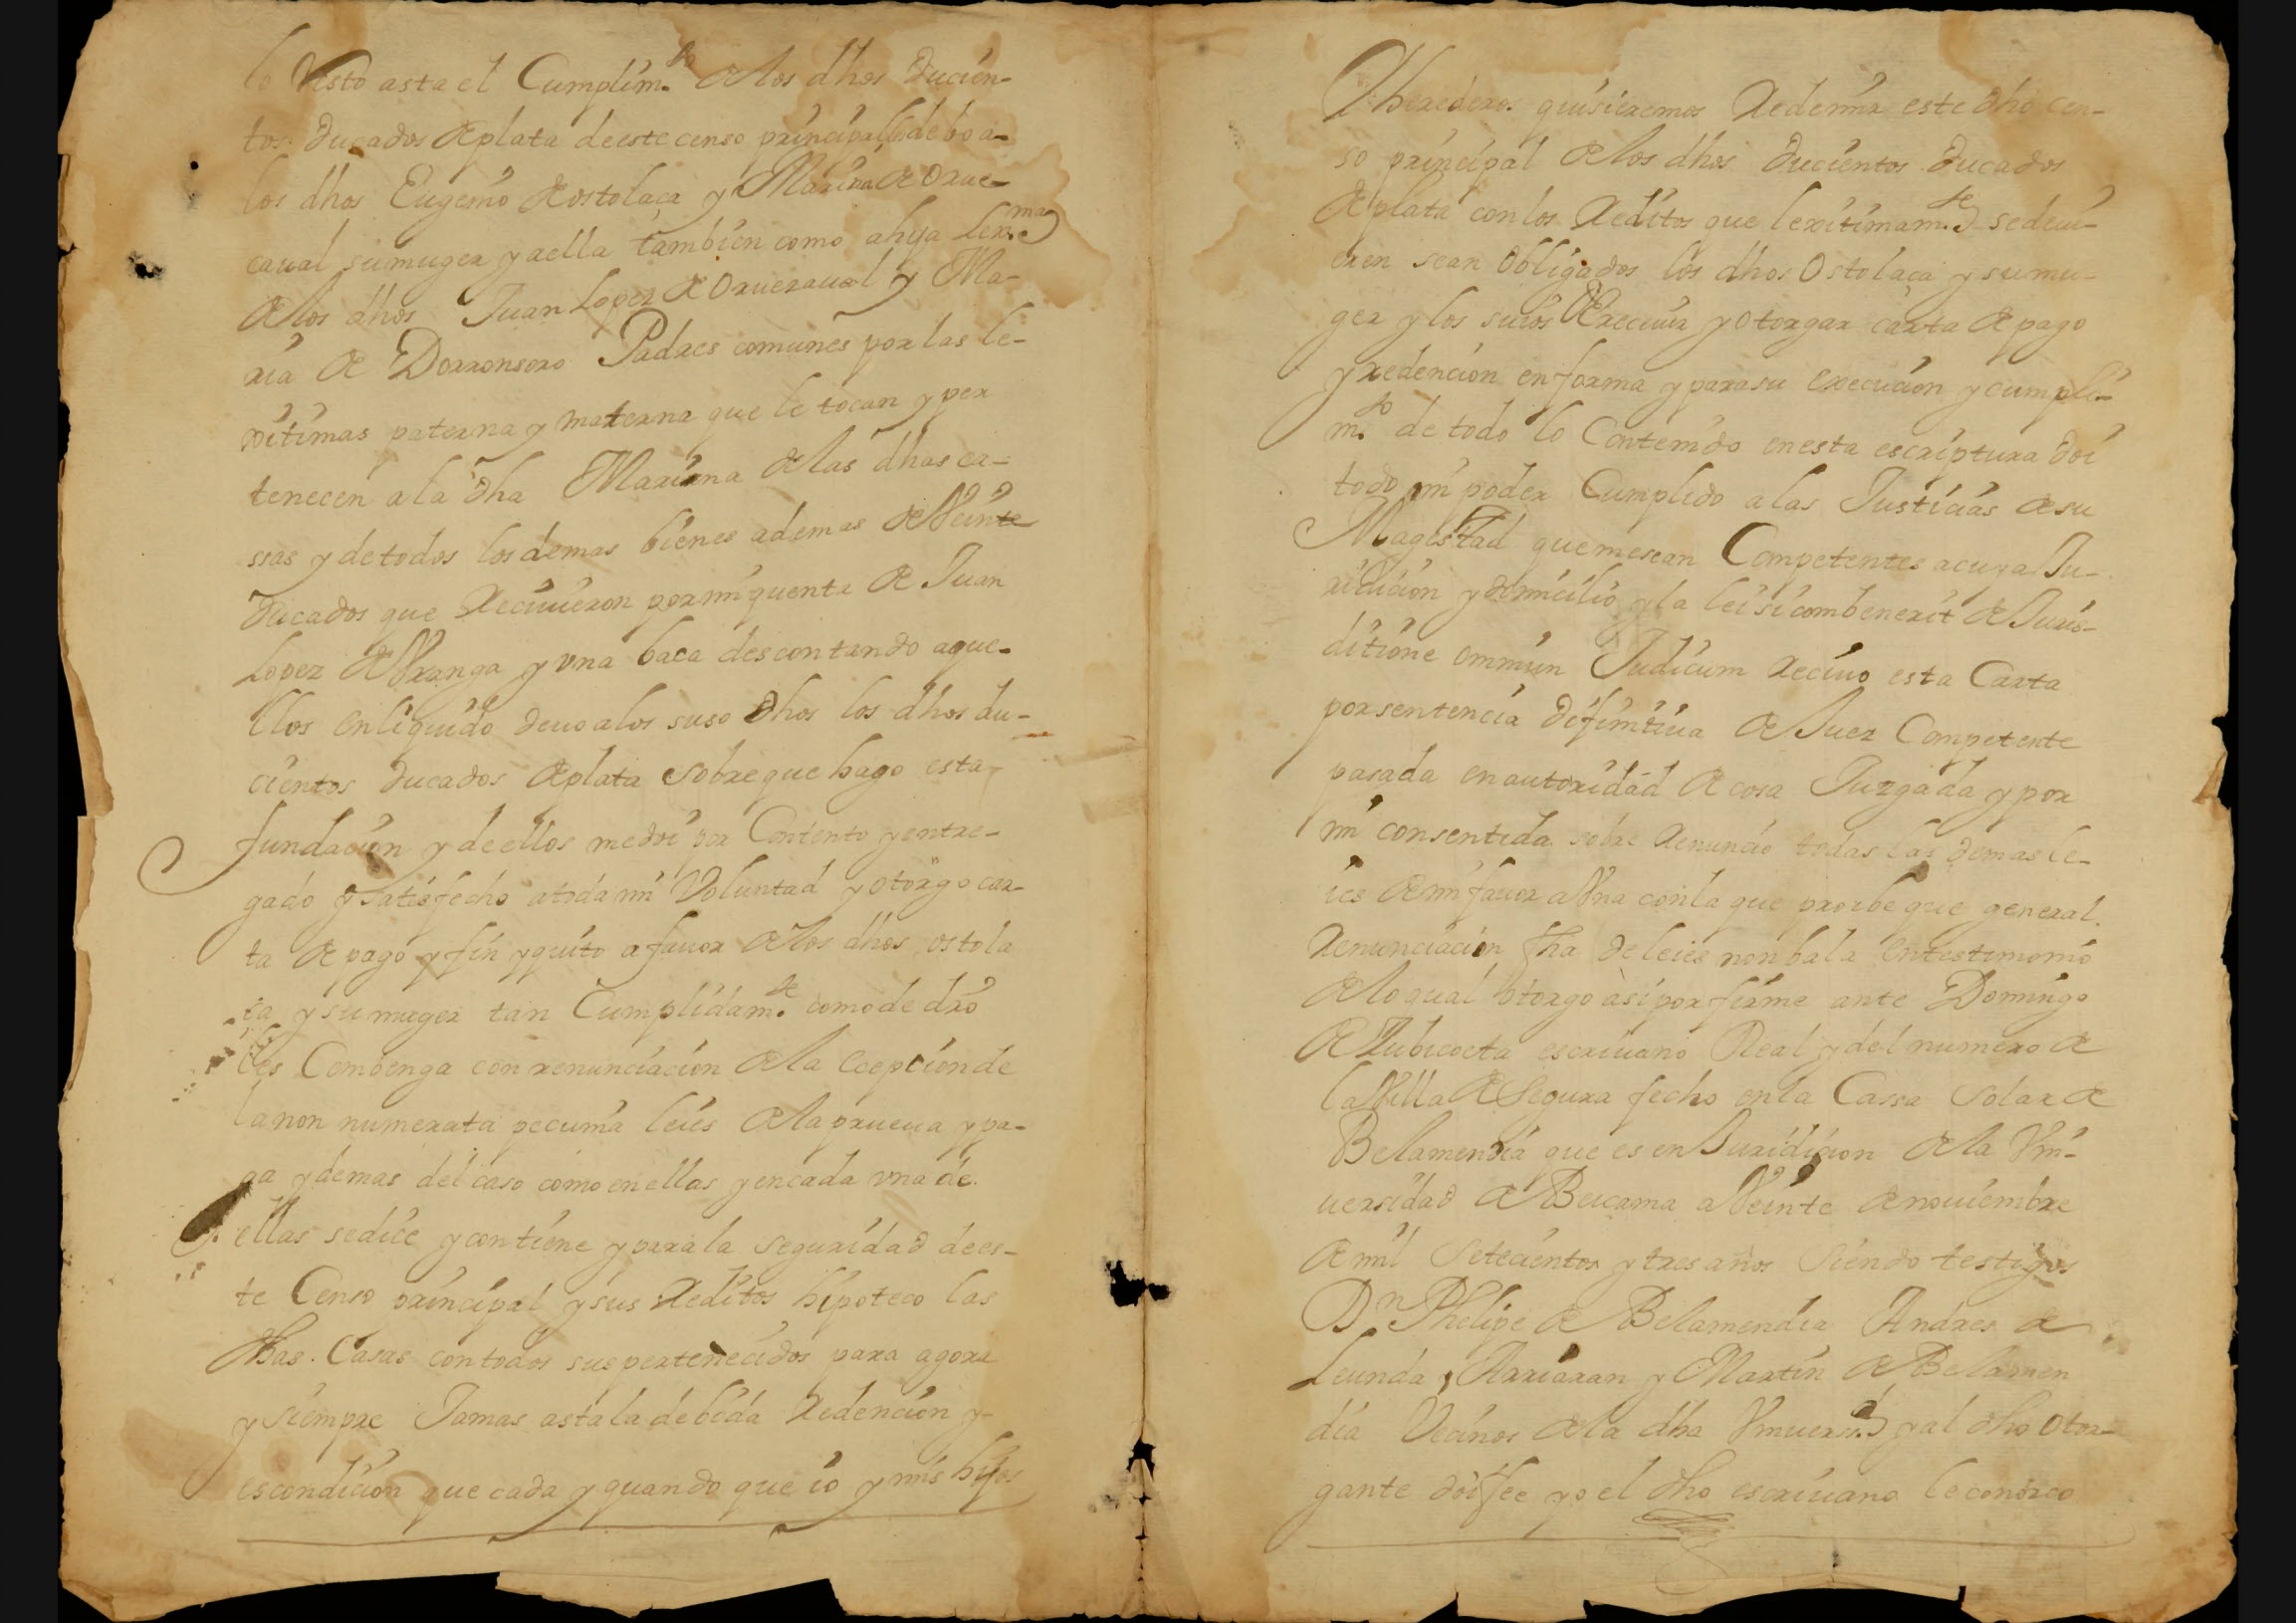 lo Resto asta el Cumplim.to de los dhos ducien-
tos ducados de plata de este censo principal los debo a-
los dhos Eugenio de ostolaça y Mariana de Orue-
caual su muger y a ella tambien como a hija lex.ma
de los dhos Juan Lopez de Orueraual y Ma-
ria de Dorronsoro Padres comunes por las le-
xitimas paterna y materna que le tocan y per
tenecen a la dha Mariana de las dhas ca-
ssas y de todos los demas bienes ademas de Veinte
ducados que Recivieron por mi quenta de Juan
Lopez de Vranga y vna baca descontando aque-
llos en liquido deuo a los suso dhos los dhos du-
cientos ducados de plata sobre que hago esta
fundacion y de ellos me doi por Contento y entre-
gado y satisfecho a toda mi Voluntad y otorgo car-
ta de pago y fin y quito a favor de los dhos ostola
ça y su muger tan Cumplidam.te como de dro
les Combenga con renunciacion de la ecepcion de
la non numerata pecunia leies de la prueua y pa-
ga y demas del caso como en ellas y en cada vna de
ellas se dice y contiene y para la seguridad de es-
te Censo principal y sus Reditos hipoteco las
dhas Casas con todos sus pertenecidos para agora
y siempre Jamas asta la debida Redencion y-
es condicion que cada y quando que io y mis hijos
Y herederos quisieremos Redemir este dho cen-
so principal de los dhos ducientos ducados
de plata con los Reditos que lexitimam.te se deui-
eren sean Obligados los dhos Ostolaça y su mu-
ger y los suios de Reciuir y otorgar carta de pago
y redencion en forma y para su execucion y cumpli-
m.to de todo lo Contenido en esta escriptura doi
todo mi poder Cumplido a las Justicias de su
Magestad que me sean Competentes a cuya Ju-
ridicion y domicilio y la lei si combenerit de Juris-
ditione omniun Judicum Reciuo esta Carta
por sentencia difinitiua de Juez Competente
pasada en autoridad de cosa Juzgada y por
mi consentida sobre Renuncio todas las demas le-
ies de mi fauor a Vna con la que proibe que general
Renunciacion fha de leies non bala En testimonio
de lo qual otorgo asi por firme ante Domingo
de Zubicoeta escriuano Real y del numero de
la Villa de Segura fecho en la Cassa solar de
Belamendia que es en Juridicion de la Vni-
uersidad de Beicama a Veinte de nouiembre
de mil Setecientos y tres años Siendo testigos
Dn Phelipe de Belamendia Andres de
Leunda y Arriaran y Martin de Belamen
dia Vecinos de la dha Vniuersi.d y al dho Otor-
gante doi fee yo el dho escriuano le conozco